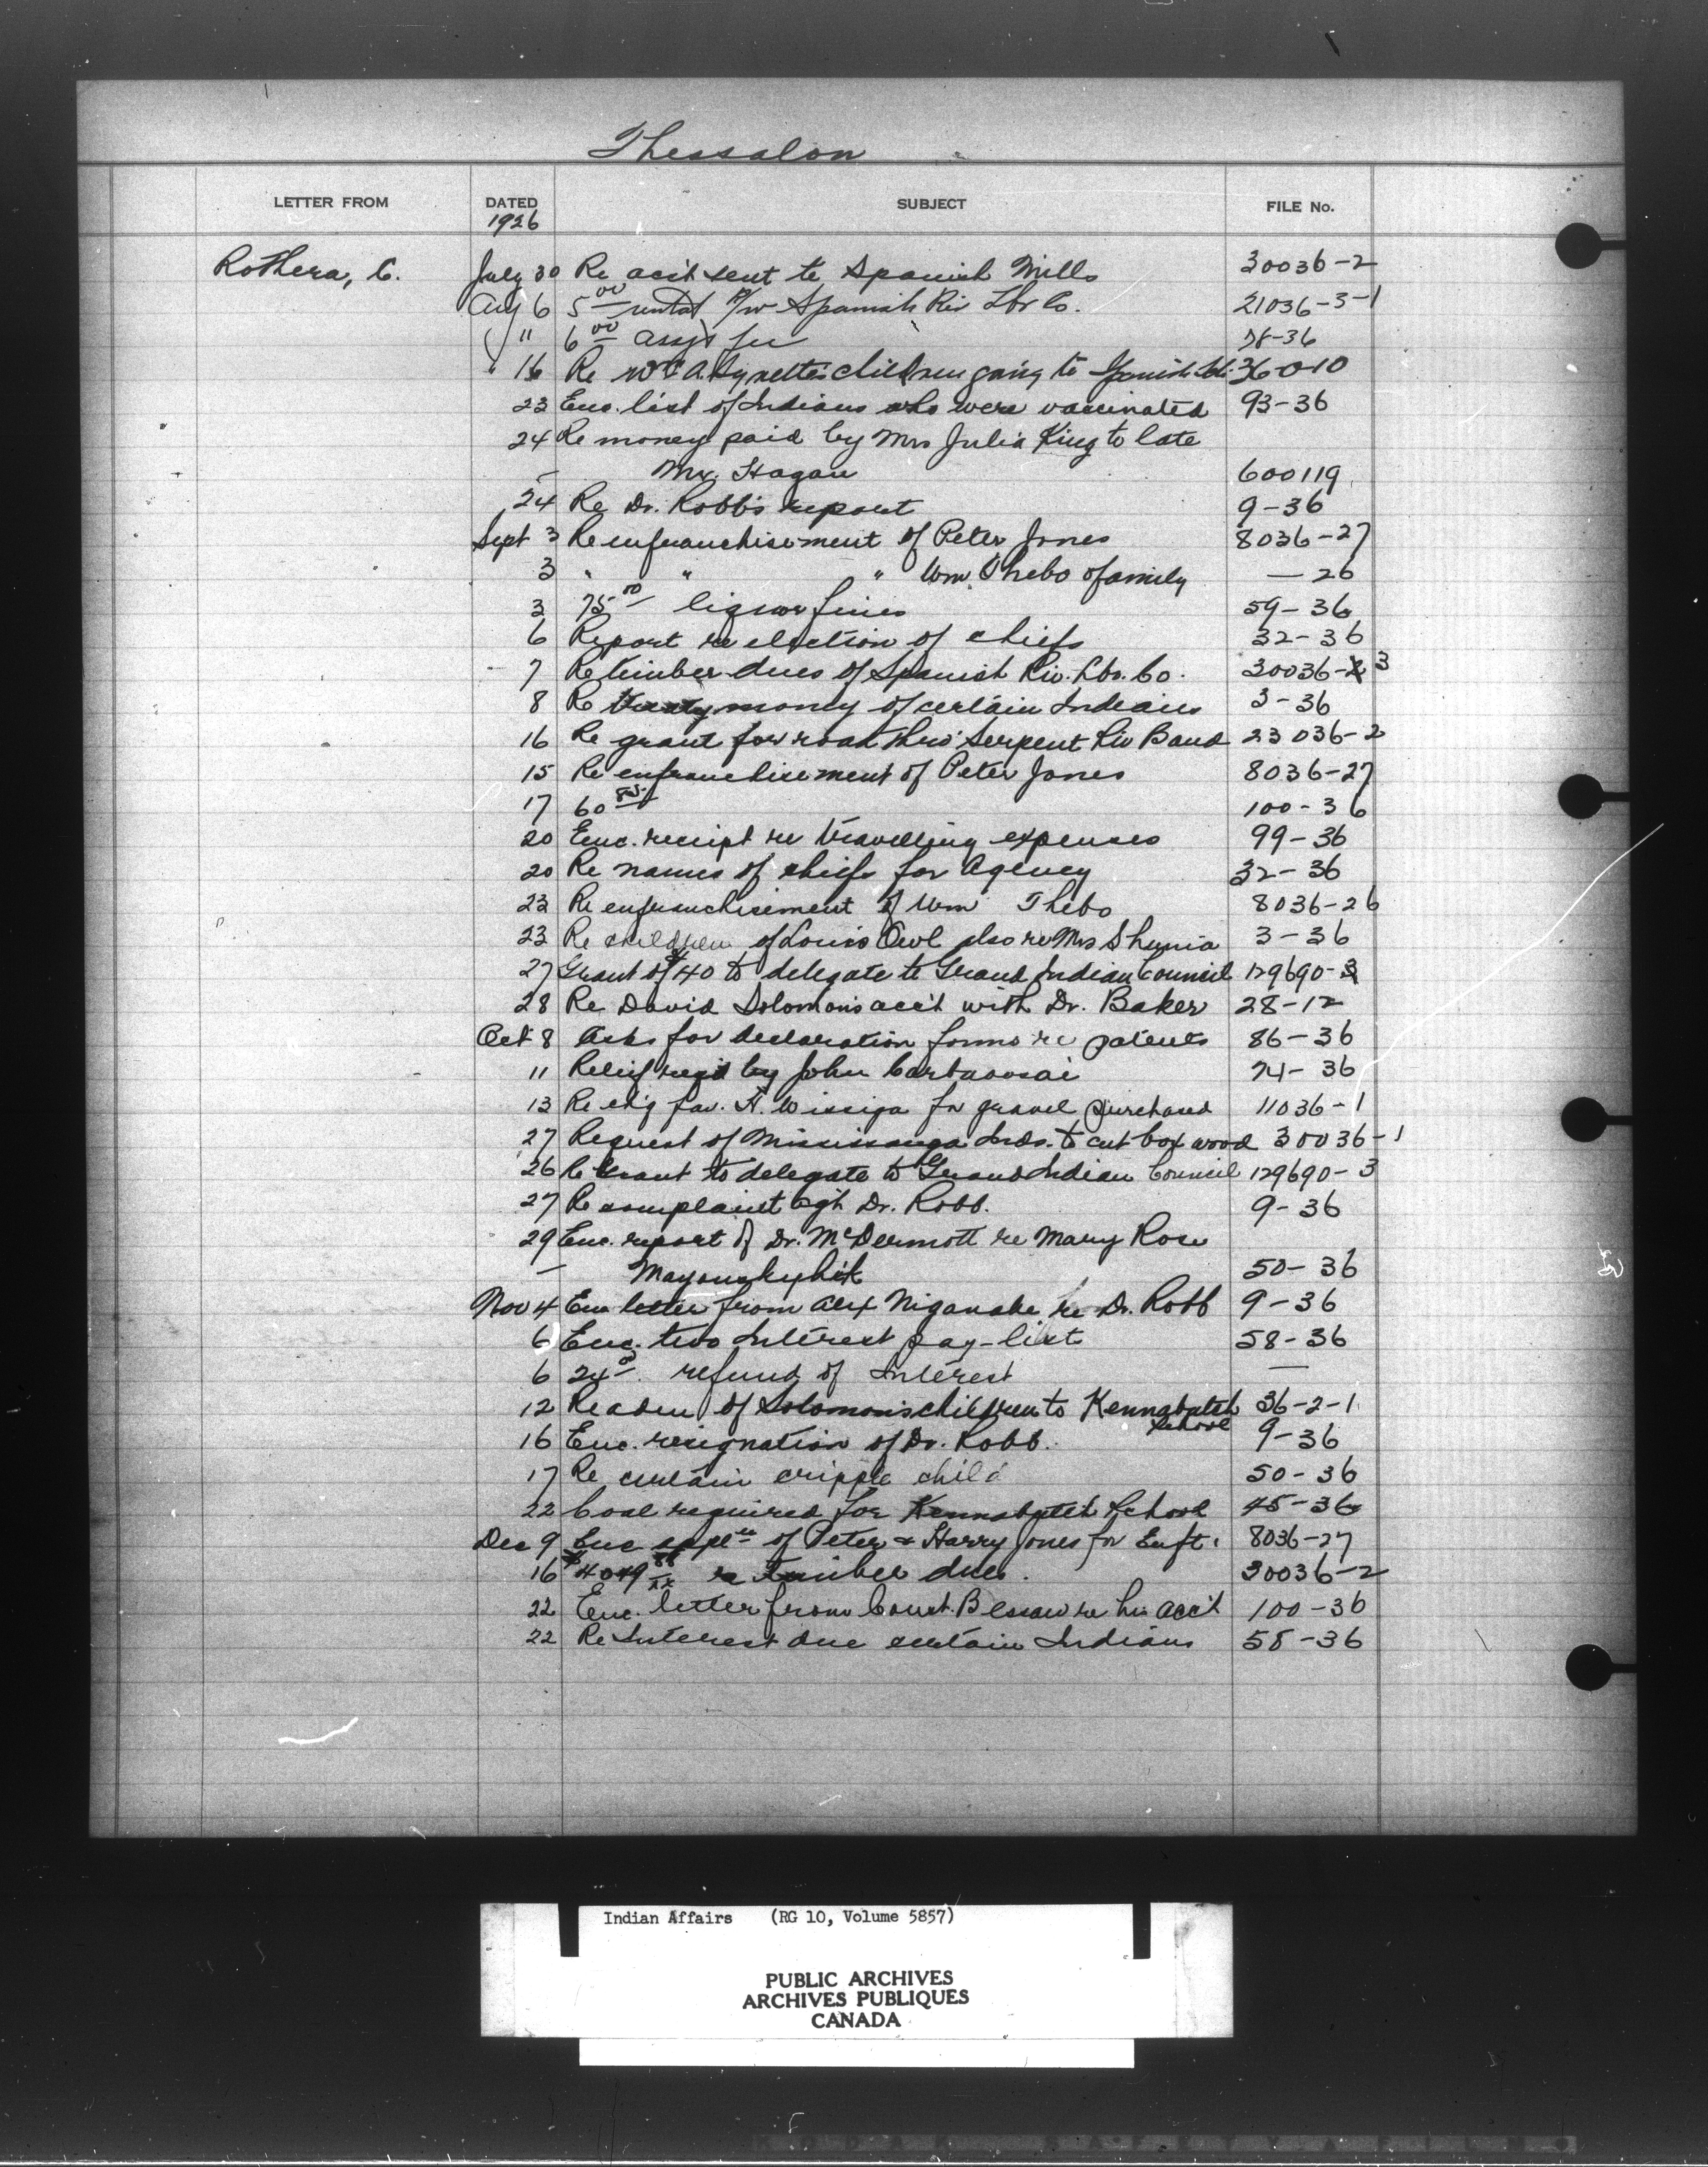 Thessalon
LETTER FROM DATED SUBJECT FILE No.
1926
Rothera, C. July 30 Re acc't sent to Spanish Mills 30036-2
Aug 6 5 00 A/w Spanish Riv Lbr Co. 21036-3-1
" 6 00 fee 78-36
" 16 Re children going to Spanish 36-0-10
23 Enc. list of Indians who were vaccinated 93-36
24 Re money paid by Mrs Julia King to late
— Mr. Hagan 600119
24 Re Dr. Robb's report 9-36
Sept 3 Re enfranchisement of Peter Jones 8036-27
3 " " " Wm Thebo & family — 26
3 75 00 liquor fines 59-36
6 Report re election of chiefs 32-36
7 Re timber dues of Spanish Riv. Lbr. Co. 30036-2 3
8 Re treaty money of certain Indians 3-36
16 Re grant for road thro' Serpent Riv Band 23036-2
15 Re enfranchisement of Peter Jones 8036-27
17 60 100-36
20 Enc. receipt re travelling expenses 99-36
20 Re names of chiefs for Agency 32-36
23 Re enfranchisement of Wm Thebo 8036-26
23 Re children of Louis Owl also re Mrs Shunia 3-36
27 Grant of $40 to delegate to Grand Indian Council 129690-3
28 Re David Solomon's acc't with Dr. Baker 28-12
Oct 8 Asks for declaration forms re patents 86-36
11 Relief req'd by John 74-36
13 Re ch'q fav. H. Wissiga for gravel purchased 11036-1
27 Request of Mississauga Inds. to cut box wood 30036-1
26 Re Grant to delegate to Grand Indian Council 129690-3
27 Re complaint ag't Dr. Robb. 9-36
29 Enc. report of Dr. McDermott re Mary Rose
— 50-36
Nov 4 Enc letter from Alex Niganobe re Dr. Robb 9-36
6 Enc. two Interest pay-list 58-36
6 24 00 refund of Interest —
12 Re adm of Solomon's children to Kennabutch School 36-2-1
16 Enc. resignation of Dr. Robb. 9-36
17 Re certain cripple child 50-36
22 Coal required for Kennabutch School 45-36
Dec 9 Enc appl'n of Peter & Harry Jones for Enft. 8036-27
16 $4049 re timber dues. 30036-2
22 Enc. letter from Const. re his acc't 100-36
22 Re Interest due certain Indians 58-36
Indian Affairs (RG 10, Volume 5857)
PUBLIC ARCHIVES
ARCHIVES PUBLIQUES
CANADA